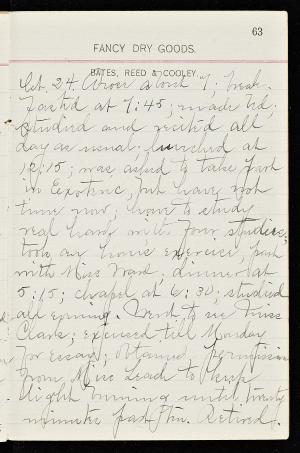 63
FANCY DRY GOODS.
BATES, REED & COOLEY.
Oct. 24. Arose about 7; break-
fasted at 7:45; made bd;
studied and recited all
day as usual; lunched at
12:15; was asked to take part
in Exoteric, but have not
time now; have to study
real hard with four studies;
took an hour's exercise, part
with Miss Ward; dinner at
5:15; chapel at 6:30; studied
all evening. Went to see Miss
Clark; excused till Monday
for Essay; obtained permission
from Miss Lead to keep
light burning until twenty
minutes past ten. Retired.